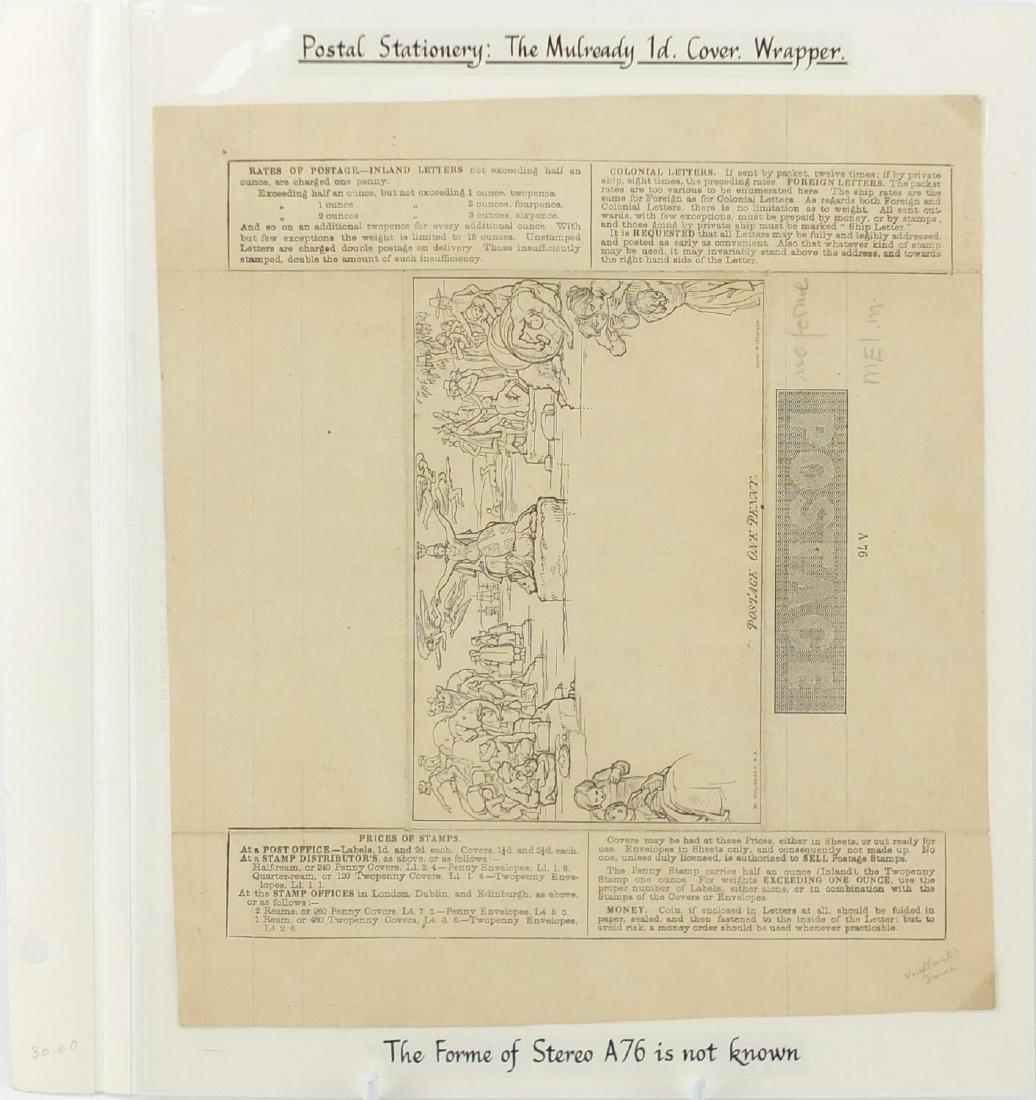 Postal Stationery: The Mulready 1d. Cover. Wrapper.
RATES OF POSTAGE.—INLAND LETTERS not exceeding half an
ounce, are charged one penny.
Exceeding half an ounce, but not exceeding 1 ounce, twopence.
„ 1 ounce „ 2 ounces, fourpence.
„ 2 ounces „ 3 ounces, sixpence.
And so on an additional twopence for every additional ounce. With
but few exceptions the weight is limited to 16 ounces. Unstamped
Letters are charged double postage on delivery. Those insufficiently
stamped, double the amount of such insufficiency.
COLONIAL LETTERS. If sent by packet, twelve times; if by private
ship, eight times, the preceding rates. FOREIGN LETTERS. The packet
rates are too various to be enumerated here. The ship rates are the
same for Foreign as for Colonial Letters. As regards both Foreign and
Colonial Letters, there is no limitation as to weight. All sent out-
wards, with few exceptions, must be prepaid by money, or by stamps;
and those going by private ship must be marked "Ship Letter."
It is REQUESTED that all Letters may be fully and legibly addressed,
and posted as early as convenient. Also that whatever kind of stamp
may be used, it may invariably stand above the address, and towards
the right hand side of the Letter.
no forme
POSTAGE
A 76
POSTAGE ONE PENNY.
W. MULREADY, R.A.
PRICES OF STAMPS.
At a POST OFFICE.—Labels, 1d. and 2d. each. Covers, 1¼d. and 2¼d. each.
At a STAMP DISTRIBUTOR'S, as above, or as follows:—
Half-ream, or 240 Penny Covers, L1. 2. 4—Penny Envelopes, L1. 1. 9.
Quarter-ream, or 120 Twopenny Covers, L1. 1. 4—Twopenny Enve-
lopes, L1. 1. 1.
At the STAMP OFFICES in London, Dublin, and Edinburgh, as above,
or as follows:—
2 Reams, or 960 Penny Covers, L4. 7. 0.—Penny Envelopes, L4 5. 0.
1 Ream, or 480 Twopenny Covers, L4. 3. 6.—Twopenny Envelopes,
L4. 2. 6.
Covers may be had at these Prices, either in Sheets, or cut ready for
use. Envelopes in Sheets only, and consequently not made up. No
one, unless duly licensed, is authorized to SELL Postage Stamps.
The Penny Stamp carries half an ounce (inland), the Twopenny
Stamp one ounce. For weights EXCEEDING ONE OUNCE, use the
proper number of Labels, either alone, or in combination with the
Stamps of the Covers or Envelopes.
MONEY. Coin, if enclosed in Letters at all, should be folded in
paper, sealed, and then fastened to the inside of the Letter; but, to
avoid risk, a money order should be used whenever practicable.
30.00
The Forme of Stereo A76 is not known